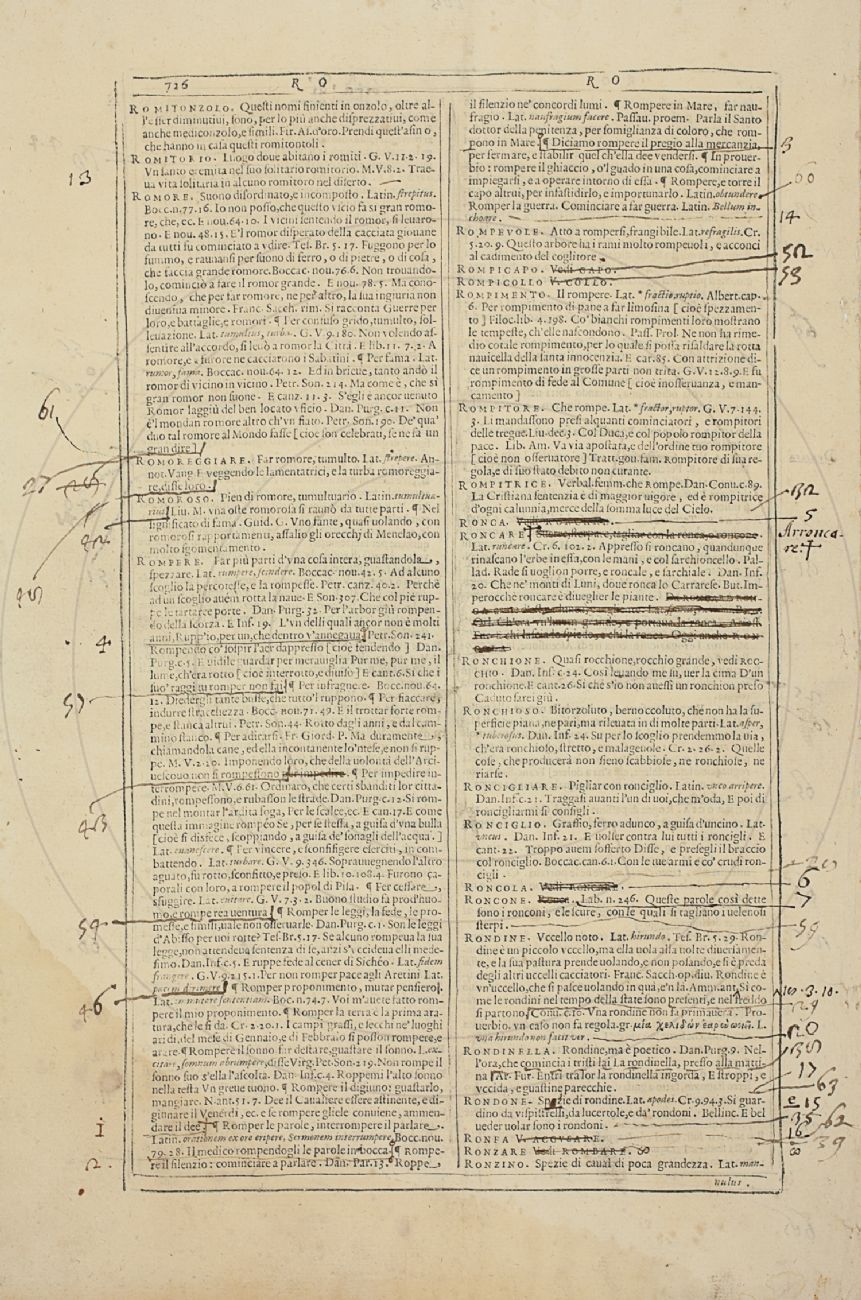 726
R O
R O
ROMITONZOLO. Questi nomi finienti in onzolo, oltre al-
l'esser diminutiui, sono, per lo più anche disprezzatiui, come
anche mediconzolo, e simili. Fir. As. d'oro. Prendi quest'asino,
che hanno in casa questi romitonzoli.
ROMITORIO. Luogo doue abitano i romiti. G. V. 11. 2. 19.
Vn santo eremita nel suo solitario romitorio. M. V. 8. 2. Trae-
ua vita solitaria in alcuno romitoro nel diserto.
ROMORE. Suono disordinato, e incomposto. Latin. strepitus.
Bocc. n. 77. 16. Io non posso, che questo vicio fa sì gran romo-
re, che, ec. E nou. 64. 10. I vicini sentendo il romor, si leuaro-
no. E nou. 48. 15. E'l romor disperato della cacciata giouane
da tutti fu cominciato a vdire. Tes. Br. 5. 17. Fuggono per lo
fummo, e raunansi per suono di ferro, o di pietre, o di cosa,
che faccia grande romore. Boccac. nou. 76. 6. Non trouando-
lo, cominciò a fare il romor grande. E nou. 78. 5. Ma cono-
scendo, che per far romore, ne per altro, la sua ingiuria non
diuenina minore. Franc. Sacch. rim. Si racconta Guerre per
loro, e battaglie, e romori. ¶ Per confuso grido, tumulto, sol-
leuazione. Lat. tumultus, turba. G. V. 9. 180. Non volendo as-
sentire all'accordo, si leuò a romor la Città. E lib. 11. 7. 2. A
romore, e a furore ne cacciarono i Sabatini. ¶ Per fama. Lat.
rumor, fama. Boccac. nou. 64. 12. Ed in brieue, tanto andò il
romor di vicino in vicino. Petr. Son. 214. Ma come è, che sì
gran romor non suone. E canz. 11. 3. S'egli è ancor venuto
Romor laggiù del ben locato vficio. Dan. Purg. c. 11. Non
è'l mondan romore altro ch'vn fiato. Petr. Son. 190. De' qua'
duo tal romore al Mondo fasse [cioè son celebrati, se ne fa un
gran dire]
ROMOREGGIARE. Far romore, tumulto. Lat. strepere. An-
not. Vang. E veggendo le lamentatrici, e la turba romoreggia-
re, disse loro.
ROMOROSO. Pien di romore, tumultuario. Latin. tumultua-
rius. Liu. M. vna oste romorosa si raunò da tutte parti. ¶ Nel
significato di fama. Guid. G. Vno fante, quasi uolando, con
romorosi rapportamenti, assalio gli orecchj di Menelao, con
molto sgomentamento.
ROMPERE. Far più parti d'vna cosa intera, guastandola,
spezzare. Lat. rumpere, scindere. Boccac. nou. 42. 5. Ad alcuno
scoglio la percotesse, e la rompesse. Petr. canz. 40. 2. Perchè
ad un scoglio auem rotta la naue. E Son. 307. Che col piè rup-
pe le tartaree porte. Dan. Purg. 32. Per l'arbor giù rompen-
do della scorza. E Inf. 19. L'vn delli quali ancor non è molti
anni, Rupp'io, per un, che dentro v'annegaua Petr. Son. 241.
Rompendo co' sospir l'aer dappresso [cioè fendendo] Dan.
Purg. c. 5. E uidile guardar per merauiglia Pur me, pur me, il
lume, ch'era rotto [cioè interrotto, e diuiso] E cant. 6. Sì che i
suo' raggi tu romper non fai ¶ Per infragnere. Bocc. nou. 64.
12. Diedergli tante busse, che tutto'l ruppono. ¶ Per fiaccare,
indurre stracchezza. Bocc. nou. 71. 47. E il trottar forte rom-
pe, e stanca altrui. Petr. Son. 44. Rotto dagli anni, e dal cam-
mino stanco. ¶ Per adirarsi. Fr. Giord. P. Ma duramente,
chiamandola cane, ed ella incontanente lo'ntese, e non si rup-
pe. M. V. 2. 20. Imponendo loro, che della uolontà dell'Arci-
uescouo non si rompessono per impedire. ¶ Per impedire in-
terrompere. M. V. 6. 61. Ordinaro, che certi sbanditi lor citta-
dini, rompessono, e rubasson le strade. Dan. Purg. c. 12. Si rom-
pe nel montar l'ardita foga, Per le scalee, ec. E can. 17. E come
questa immagine rompeo Se, per se stessa, a guisa d'vna bulla
[cioè si disfece, scoppiando, a guisa de' sonagli dell'acqua.]
Lat. euanescere. ¶ Per vincere, e sconfiggere eserciti, in com-
battendo. Lat. turbare. G. V. 9. 346. Soprauuegnendo l'altro
aguato, fu rotto, sconfitto, e preso. E lib. 10. 108. 4. Furono ca-
porali con loro, a rompere il popol di Pisa. ¶ Per cessare,
sfuggire. Lat. euitare. G. V. 7. 3. 2. Buono studio fa prod'huo-
mo, e rompe rea uentura. ¶ Romper le leggi, la fede, le pro-
messe, e simili, uale non osseruarle. Dan. Purg. c. 1. Son le leggi
d'Abisso per uoi rotte? Tes. Br. 5. 17. Se alcuno rompeua la sua
legge, non attendeua sentenza di se, anzi s'vccideua elli mede-
simo. Dan. Inf. c. 5. E ruppe fede al cener di Sichéo. Lat. fidem
frangere. G. V. 9. 215. 1. Per non romper pace agli Aretini Lat.
pacem dirimere. ¶ Romper proponimento, mutar pensiero.
Lat. immutare sententiam. Boc. n. 74. 7. Voi m'auete fatto rom-
pere il mio proponimento. ¶ Romper la terra è la prima ara-
tura, che le si dà. Cr. 2. 20. 1. I campi grassi, e secchi ne' luoghi
aridi, del mese di Gennaio, e di Febbraio si posson rompere, e
arare. ¶ Rompere il sonno far destare, guastare il sonno. L. ex-
citare, somnum abrumpere, disse Virg. Pet. Son. 219. Non rompe il
sonno suo s'ella l'ascolta. Dan. Inf. c. 4. Roppemi l'alto sonno
nella testa Vn greue tuono. ¶ Rompere il digiuno: guastarlo,
mangiare. N. ant. 51. 7. Dee il Caualiere essere astinente, e di-
giunare il Venerdì, ec. e se rompere gliele conuiene, ammen-
dare il dee ¶ Romper le parole, interrompere il parlare,
Latin. orationem ex ore eripere, Sermonem interrumpere. Bocc. nou.
79. 28. Il medico rompendogli le parole in bocca. ¶ Rompe-
re il silenzio: cominciare a parlare. Dan. Par. 13. Roppe
il silenzio ne' concordi lumi. ¶ Rompere in Mare, far nau-
fragio. Lat. naufragium facere. Passau. proem. Parla il Santo
dottor della penitenza, per somiglianza di coloro, che rom-
pono in Mare. ¶ Diciamo rompere il pregio alla mercanzia,
per fermare, e stabilir quel ch'ella dee vendersi. ¶ In prouer-
bio: rompere il ghiaccio, o'l guado in una cosa, cominciare a
impiegarsi, e a operare intorno di essa. ¶ Rompere, e torre il
capo altrui, per infastidirlo, e importunarlo. Latin. obtundere.
Romper la guerra. Cominciare a far guerra. Latin. Bellum in-
choare.
ROMPEVOLE. Atto a rompersi, frangibile. Lat. refragilis. Cr.
5. 20. 9. Questo arbore ha i rami molto rompeuoli, e acconci
al cadimento del coglitore.
ROMPICAPO. Vedi CAPO.
ROMPICOLLO V. COLLO.
ROMPIMENTO. Il rompere. Lat. * fractio, ruptio. Albert. cap.
6. Per rompimento di pane a far limosina [cioè spezzamen-
to] Filoc. lib. 4. 198. Co' bianchi rompimenti loro mostrano
le tempeste, ch'elle nascondono. Pass. Prol. Ne non ha rime-
dio cotale rompimento, per lo quale si possa risaldare la rotta
nauicella della santa innocenzia. E car. 85. Con attrizione di-
ce un rompimento in grosse parti non trita. G. V. 12. 8. 9. E fu
rompimento di fede al Comune [cioè inosseruanza, e man-
camento]
ROMPITORE. Che rompe. Lat. * fractor, ruptor. G. V. 7. 144.
3. Li mandassono presi alquanti cominciatori, e rompitori
delle tregue. Liu. dec. 3. Col Duca, e col popolo rompitor della
pace. Lib. Am. Va via apostata, e dell'ordine tuo rompitore
[cioè non osseruatore] Tratt. gou. fam. Rompitore di sua re-
gola, e di suo stato debito non curante.
ROMPITRICE. Verbal. femm. che rompe. Dan. Conu. c. 89.
La Cristiana sentenzia è di maggior uigore, ed è rompitrice
d'ogni calunnia, merce della somma luce del Cielo.
RONCA. Vedi RONCARE.
RONCARE. Sterpare, tagliare con la ronca, o roncone.
Lat. runcare. Cr. 6. 102. 2. Appresso si roncano, quandunque
rinascano l'erbe in essa, con le mani, e col sarchioncello. Pal-
lad. Rade si uoglion porre, e roncale, e sarchiale. Dan. Inf.
20. Che ne' monti di Luni, doue ronca lo Carrarese. But. Im-
perocchè roncare è diueglier le piante.
RONCHIONE. Quasi rocchione, rocchio grande, vedi ROC-
CHIO. Dan. Inf. c. 24. Così leuando me su, uer la cima D'un
ronchione. E cant. 26. Sì che s'io non auessi un ronchion preso
Caduto sarei giù.
RONCHIOSO. Bitorzoluto, bernoccoluto, che non ha la su-
perficie piana, ne pari, ma rileuata in di molte parti. Lat. asper,
* tuberosus. Dan. Inf. 24. Su per lo scoglio prendemmo la uia,
ch'era ronchioso, stretto, e malageuole. Cr. 2. 26. 2. Quelle
cose, che producerà non sieno scabbiose, ne ronchiose, ne
riarse.
RONCIGLIARE. Pigliar con ronciglio. Latin. vnco arripere.
Dan. Inf. c. 21. Traggasi auanti l'un di uoi, che m'oda, E poi di
roncigliarmi si consigli.
RONCIGLIO. Graffio, ferro adunco, a guisa d'uncino. Lat.
vncus. Dan. Inf. 21. E uolser contra lui tutti i roncigli. E
cant. 22. Troppo auem sofferto Disse, e presegli il braccio
col ronciglio. Boccac. can. 6. 1. Con le tue armi e co' crudi ron-
cigli.
RONCOLA. Vedi RONCARE.
RONCONE. Ronca. Lab. n. 246. Queste parole così dette
sono i ronconi, e le scure, con le quali si tagliano i uelenosi
sterpi.
RONDINE. Vccello noto. Lat. hirundo. Tes. Br. 5. 29. Ron-
dine è un piccolo vccello, ma ella uola alla uolte diuersamen-
te, e la sua pastura prende uolando, e non posando, e sì è preda
degli altri uccelli cacciatori. Franc. Sacch. op. diu. Rondine è
vn'uccello, che si pasce uolando in quà, e'n là. Amm. ant. Sì co-
me le rondini nel tempo della state sono presenti, e nel freddo
si partono. Conu. c. 10. Vna rondine non fa primauera. Pro-
uerbio. vn caso non fa regola. gr. μία χελιδών ἔαρ οὐ ποιεῖ. L.
vna hirundo non facit ver.
RONDINELLA. Rondine, ma è poetico. Dan. Purg. 9. Nel-
l'ora, che comincia i tristi lai La rondinella, presso alla matti-
na
vccida, e guastine parecchie.
RONDONE. Spezie di rondine. Lat. apodes. Cr. 9. 94. 3. Si guar-
dino da vispistrelli, da lucertole, e da' rondoni. Bellinc. E bel
ueder uolar sono i rondoni.
RONFA V. ACCVSARE.
RONZARE Vedi ROMBARE.
RONZINO. Spezie di caual di poca grandezza. Lat. man-
nulus.
13
61
4
57
43
59
46
1
2
3
60
14
52
53
132
5
Arronca-
re
6
7
59
20
17
63
15
62
39